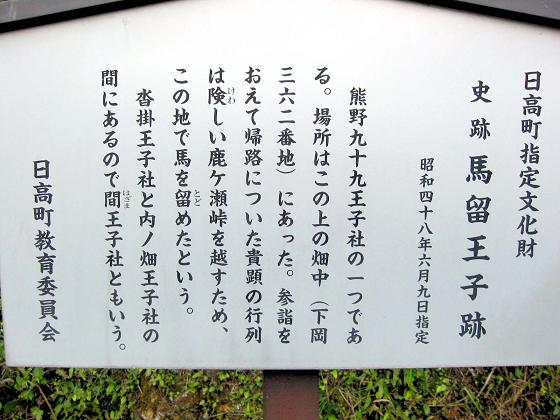 日高町指定文化財
史跡 馬留王子跡
昭和四十八年六月九日指定
熊野九十九王子社の一つであ
る。場所はこの上の畑中（下岡
三六二番地）にあった。参詣を
おえて帰路についた貴顕の行列
は険しい鹿ケ瀬峠を越すため、
この地で馬を留めたという。
沓掛王子社と内ノ畑王子社の
間にあるので間王子社ともいう。
日高町教育委員会
けわ
とど
はざま